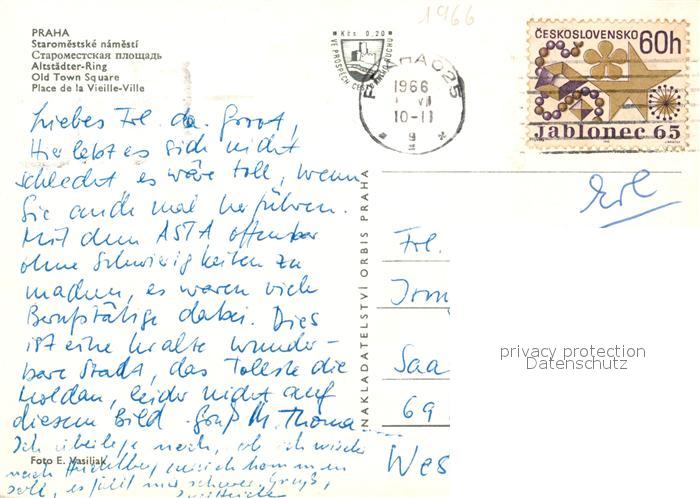 1966
PRAHA
Staroměstské náměstí
Староместская площадь
Altstädter-Ring
Old Town Square
Place de la Vieille-Ville
Kčs 0,20
VE PROSPĚCH CEST. RUCHU
PRAHA 025
1966
VI
10-11
ČESKOSLOVENSKO 60h
Jablonec 65
Liebes Frl. de Groot,
Hier lebt es sich nicht
schlecht, es wäre toll, wenn
Sie auch mal herführen.
Mit dem ASTA offenbar
ohne Schwierigkeiten zu
machen, es waren viele
Berufstätige dabei. Dies
ist eine uralte wunder-
bare Stadt, das Tollste die
Moldau, leider nicht auf
diesem Bild. Gruß M. Thoma
Ich überlege noch, ob ich wieder
nach Heidelberg zurück kommen
soll, es fällt mir schwer. Gruß,
Foto E. Vasiliak
NAKLADATELSTVÍ ORBIS PRAHA
Frl.
Irm
Saa
69
Wes
privacy protection
Datenschutz